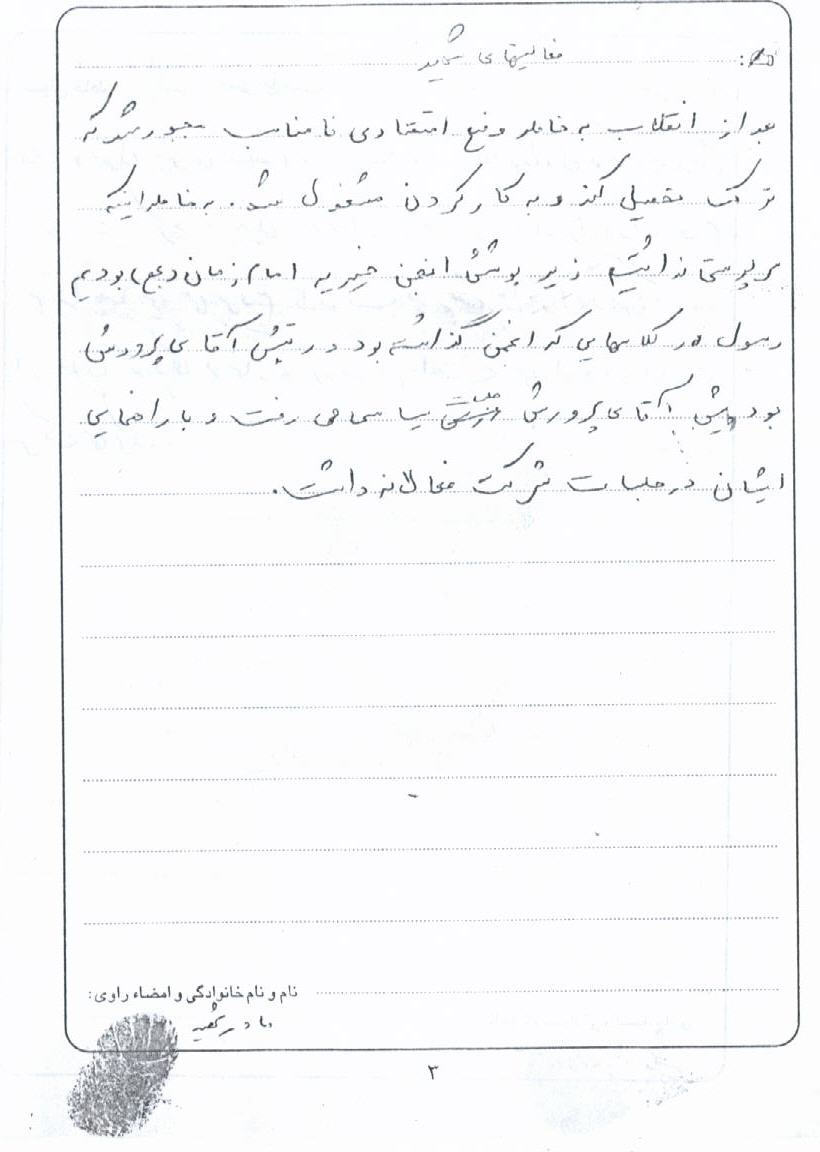 فعالیتهای شهید
بعد از انقلاب به خاطر وضع اقتصادی نامناسب مجبور شد که
ترک تحصیل کند و به کار کردن مشغول شد. به خاطر اینکه
سرپرستی نداشتیم زیر پوشش انجمن خیریه امام زمان (عج) بودیم
رسول در کلاسهایی که انجمن گذاشته بود در پیش آقای پرورش
بود پیش آقای پرورش جلسات سیاسی می رفت و با راهنمایی
ایشان در جلسات شرکت فعالانه داشت.
نام و نام خانوادگی و امضاء راوی:
مادر شهید
۳